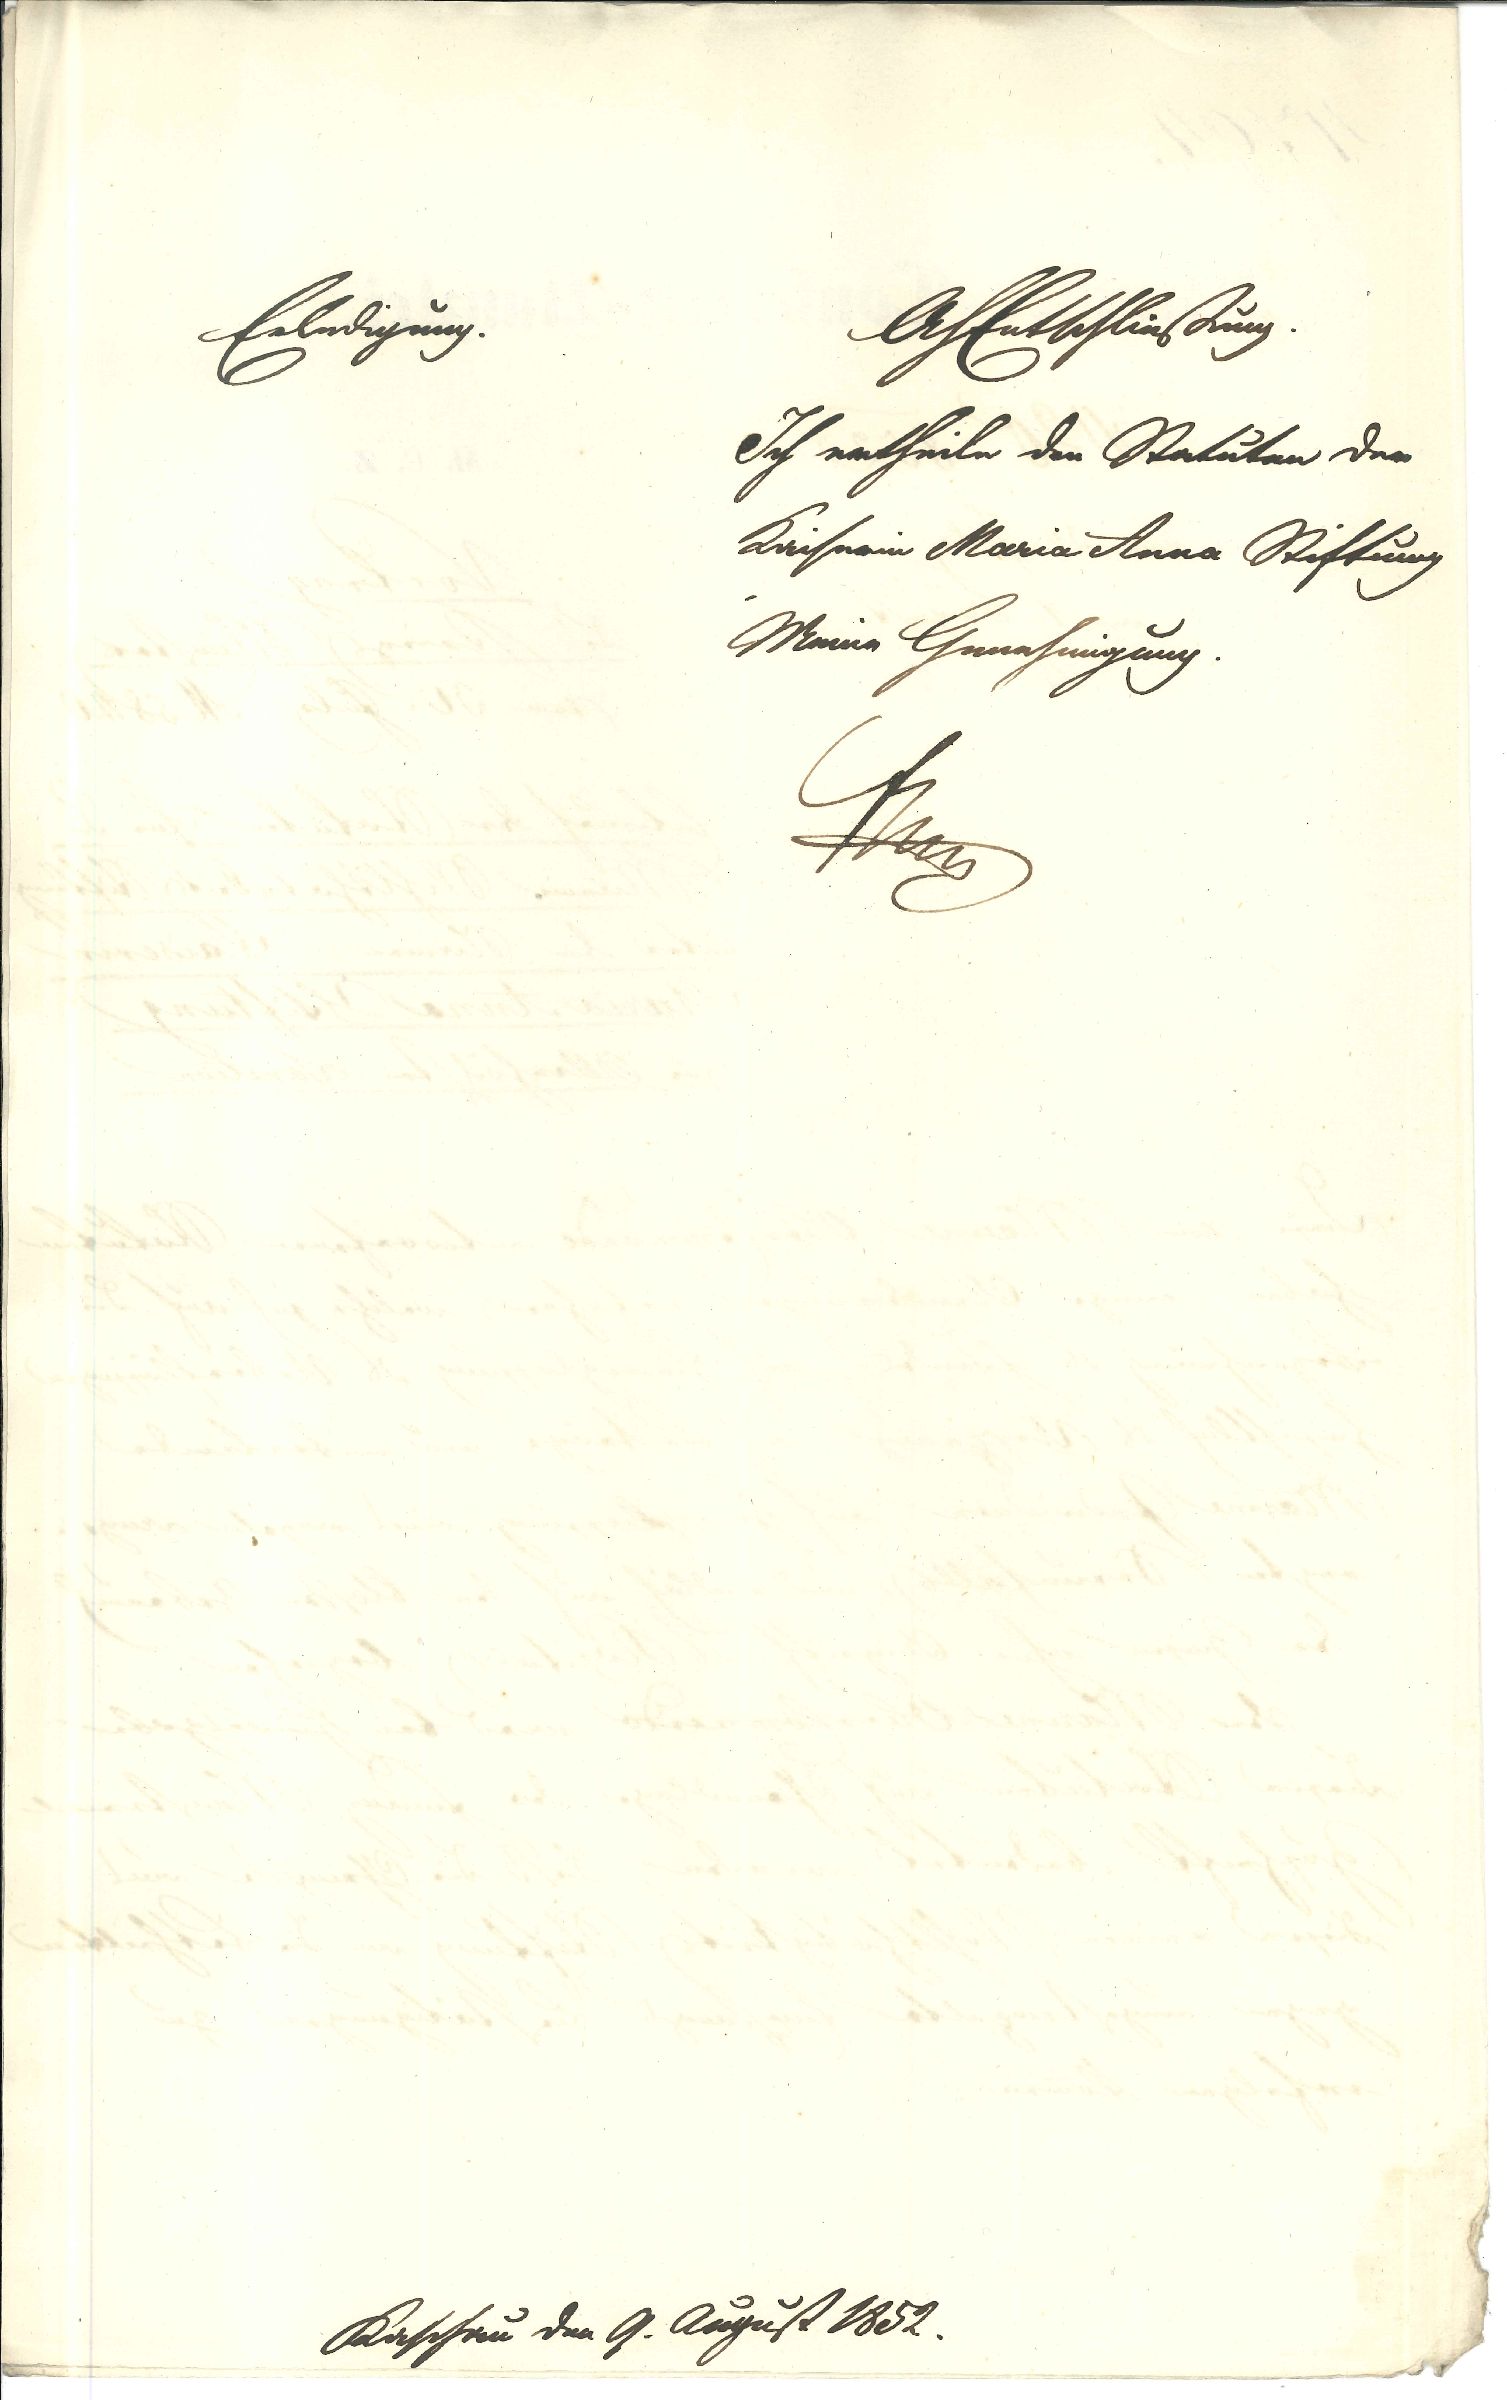 Erledigung.
AhEntschließung.
Ich ertheile den Statuten der
Kaiserin Maria Anna Stiftung
Meine Genehmigung.
Kaschau den 9. August 1852.